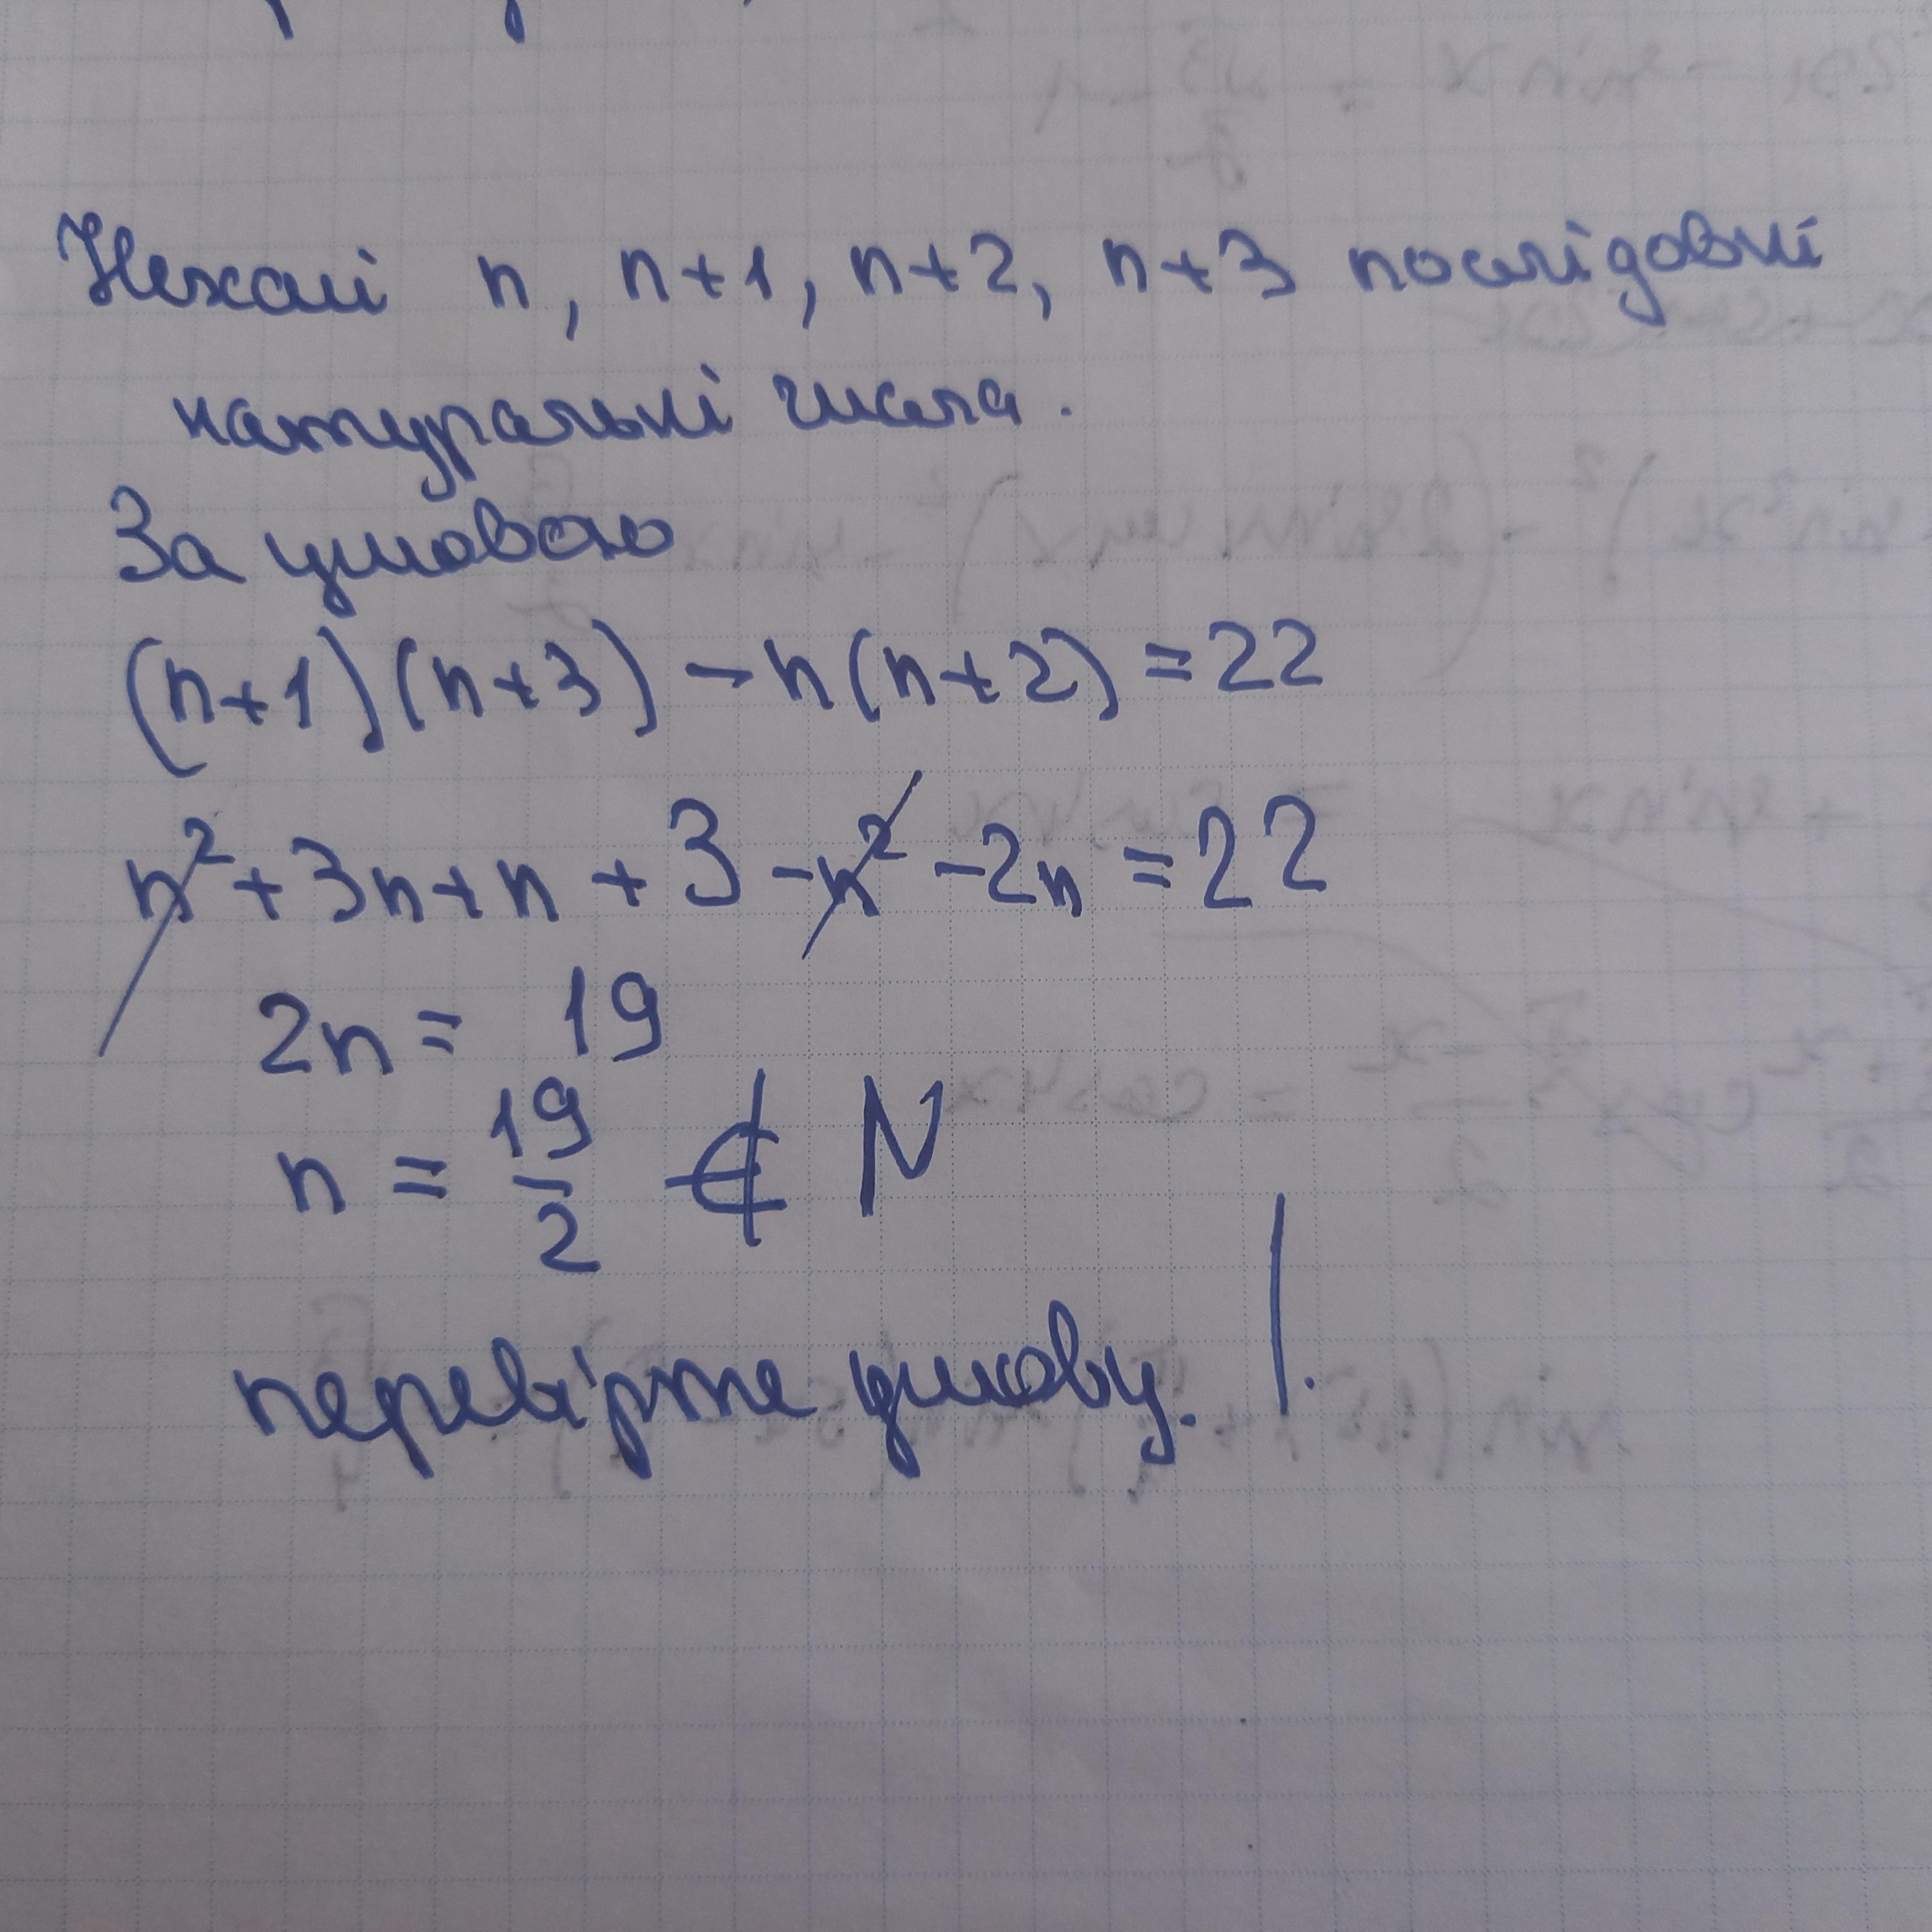 Нехай n, n+1, n+2, n+3 послідовні
натуральні числа.
За умовою
(n+1)(n+3) - n(n+2) = 22
n² + 3n + n + 3 - n² - 2n = 22
2n = 19
n = 19/2 ∉ N
перевірте умову. !